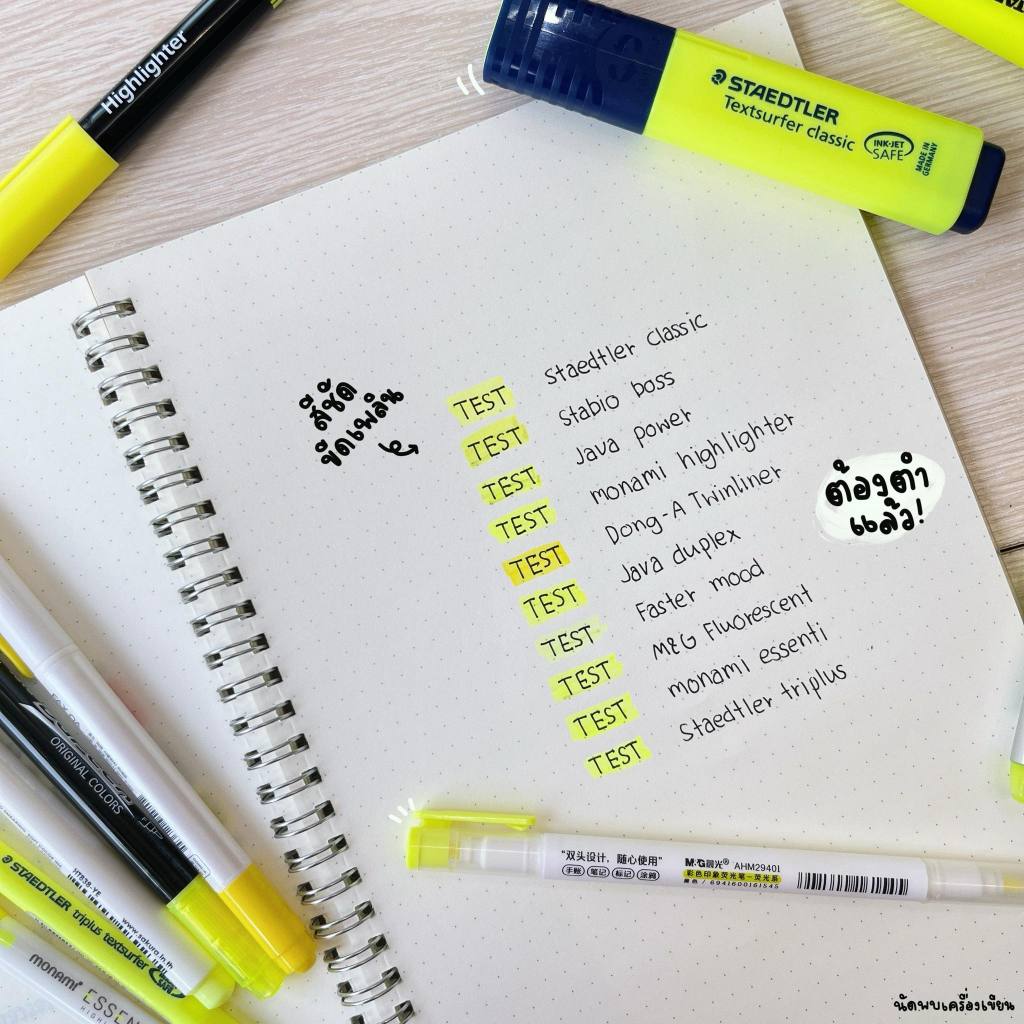 Highlighter
STAEDTLER
Textsurfer classic
INK-JET
SAFE
MADE IN
GERMANY
สีชัด
ขีดเพลิน
TEST Staedtler Classic
TEST Stabio boss
TEST Java power
TEST monami highlighter
TEST Dong-A Twinliner
TEST Java duplex
TEST Faster mood
TEST M&G Fluorescent
TEST monami essenti
TEST Staedtler triplus
ต้องตำ
แล้ว!
ORIGINAL COLORS
HT838-YE
www.sakura.in.th
STAEDTLER triplus textsurfer
monami ESSEN
"双头设计，随心使用" M&G晨光® AHM29401
手账 笔记 标记 涂鸦
彩色印象荧光笔-荧光系
黄色 / 6941600161545
นัดพบเครื่องเขียน